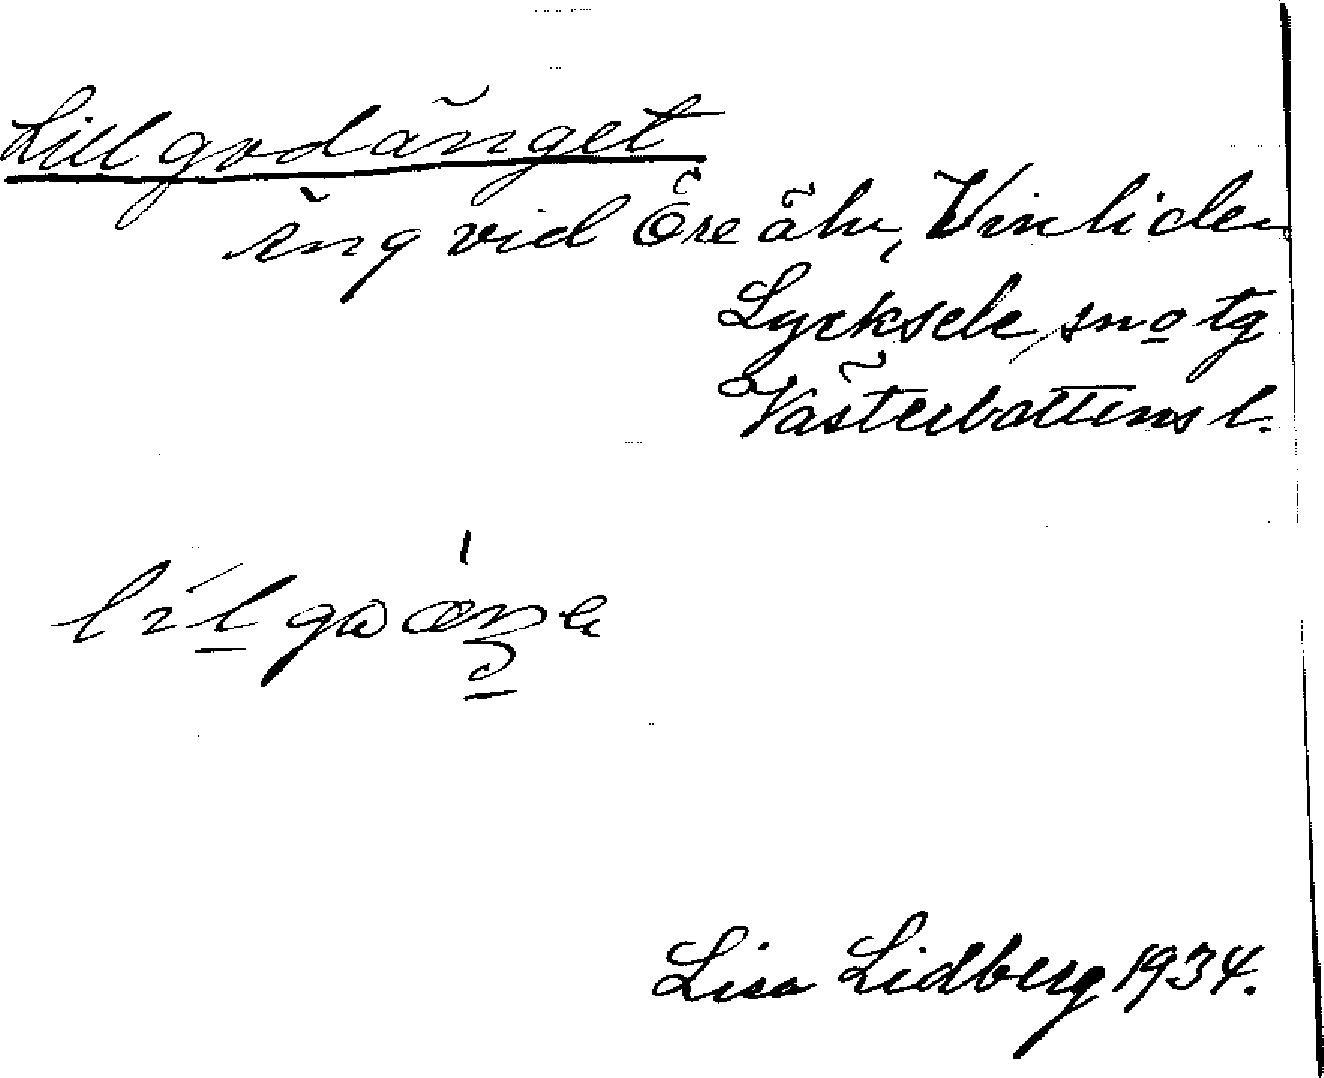 Lillgodänget
äng vid Öre älv, Vinliden
Lycksele sn o tg
Västerbottens l.
Lisa Lidberg 1934.